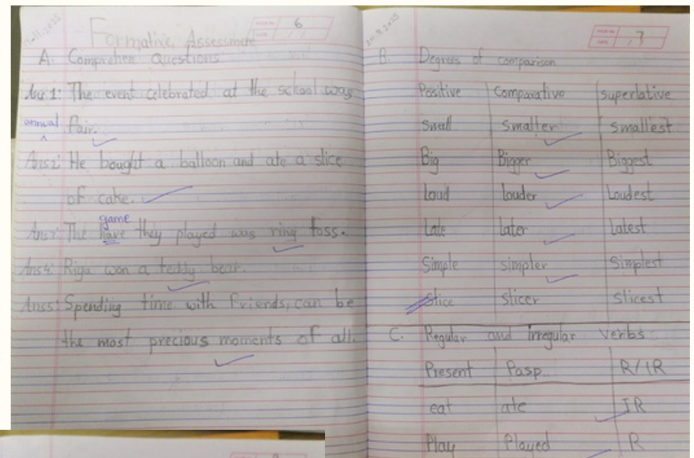 6
Formative Assessment
A. Comprehen Questions
Ans 1: The event celebrated at the school was
annual
fair.
Ans2: He bought a balloon and ate a slice
of cake.
game
The have they played was ring toss.
Ans4: Riya won a teddy bear.
Ans5: Spending time with friends, can be
the most precious moments of all.
7
B. Degrees of comparison
Positive Comparative superlative
Small smaller smallest
Big Bigger Biggest
Loud louder Loudest
Late Later Latest
Simple simpler Simplest
Slice slicer slicest
C. Regular and irregular verbs
Present Pasp. R/IR
eat ate IR
Play Played R